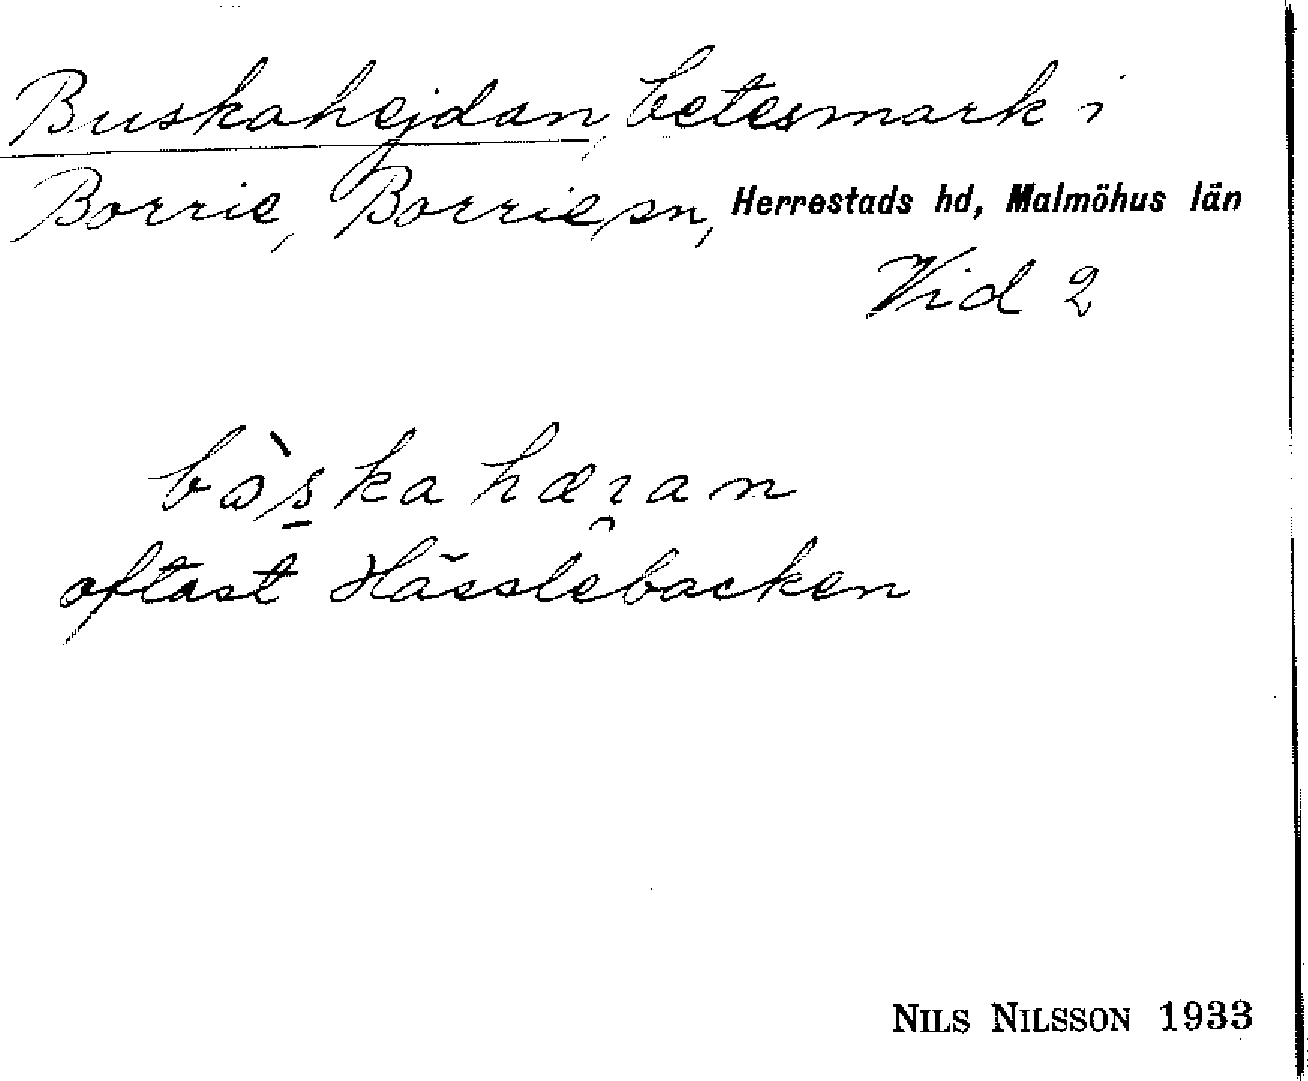 Buskahejdan, betesmark i
Borrie, Borrie sn, Herrestads hd, Malmöhus län
Vid 2
oftast Hässlebacken
NILS NILSSON 1933